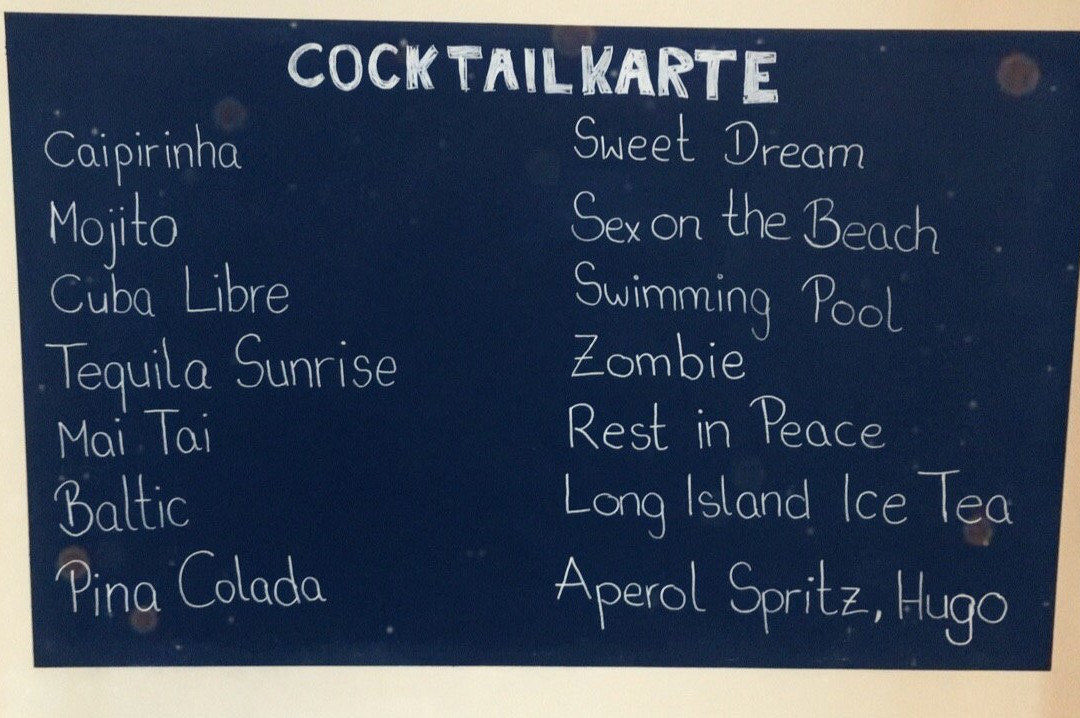 COCKTAILKARTE
Caipirinha
Mojito
Cuba Libre
Tequila Sunrise
Mai Tai
Baltic
Pina Colada
Sweet Dream
Sex on the Beach
Swimming Pool
Zombie
Rest in Peace
Long Island Ice Tea
Aperol Spritz, Hugo